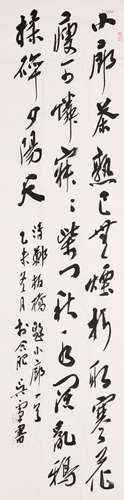 小廊茶熟已無煙折取寒花
瘦可憐寂〻柴門秋水闊亂鴉
揉碎夕陽天
清鄭板橋小廊一首
乙未月於合肥吳雪書